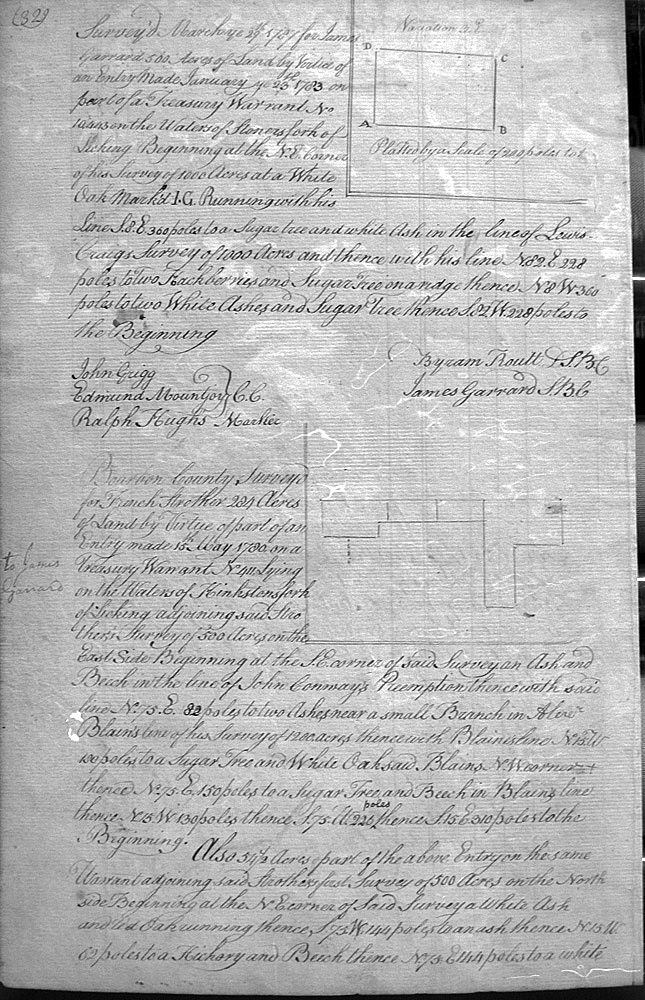 (32)
Survey'd March ye 27th 1787 for James
Garrard 500 Acres of Land by Virtue of
an Entry Made January ye 23th 1783 on
part of a Treasury Warrant No
on the Waters of Stoners fork of
Licking Beginning at the N.E. Corner
of his Survey of 1000 Acres at a White
Oak Mark'd I.G. Running with his
Line S.8.E 300 poles to a Sugar tree and white Ash in the line of Lewis
Craigs Survey of 1000 Acres and thence with his line N82.E 228
poles to two Hackberries and Sugar Tree on a ridge thence N8W 360
poles to two White Ashes and Sugar tree thence S.82.W.228 poles to
the Beginning
Variation
D
C
A
B
Platted by a Scale of 200 poles to 1
John Grigg
Edmund Mountjoy C.C.
Ralph Hughs Marker
Byram Routt D S.B.C
James Garrard S.B.C
Bourbon County Survey'd
for French Strother 284 Acres
of Land by Virtue of part of an
Entry made 15th May 1780 on a
Treasury Warrant No 411 Lying
on the Waters of Hinkstons fork
of Licking adjoining said Stro
thers Survey of 500 Acres on the
East Side Beginning at the S.E. corner of said Survey an Ash and
Beech in the line of John Conway's Preemption thence with said
line N.75.E. 82 poles to two Ashes near a small Branch in Alexr
Blains line of his Survey of 1200 acres thence with Blains line N15W
130 poles to a Sugar Tree and White Oak said Blains N.W corner &
thence N.75.E. 150 poles to a Sugar Tree and Beech in Blains line
thence N15W 130 poles thence S.75.W. 226 poles thence S15E 310 poles to the
Beginning.
Also 54½ Acres part of the above Entry on the same
Warrant adjoining said Strothers first Survey of 500 Acres on the North
side Beginning at the N E corner of Said Survey a White Ash
and red Oak running thence S.75W 144 poles to an ash thence N.15.W
62 poles to a Hickory and Beech thence N75.E 144 poles to a white
to James
Garrard